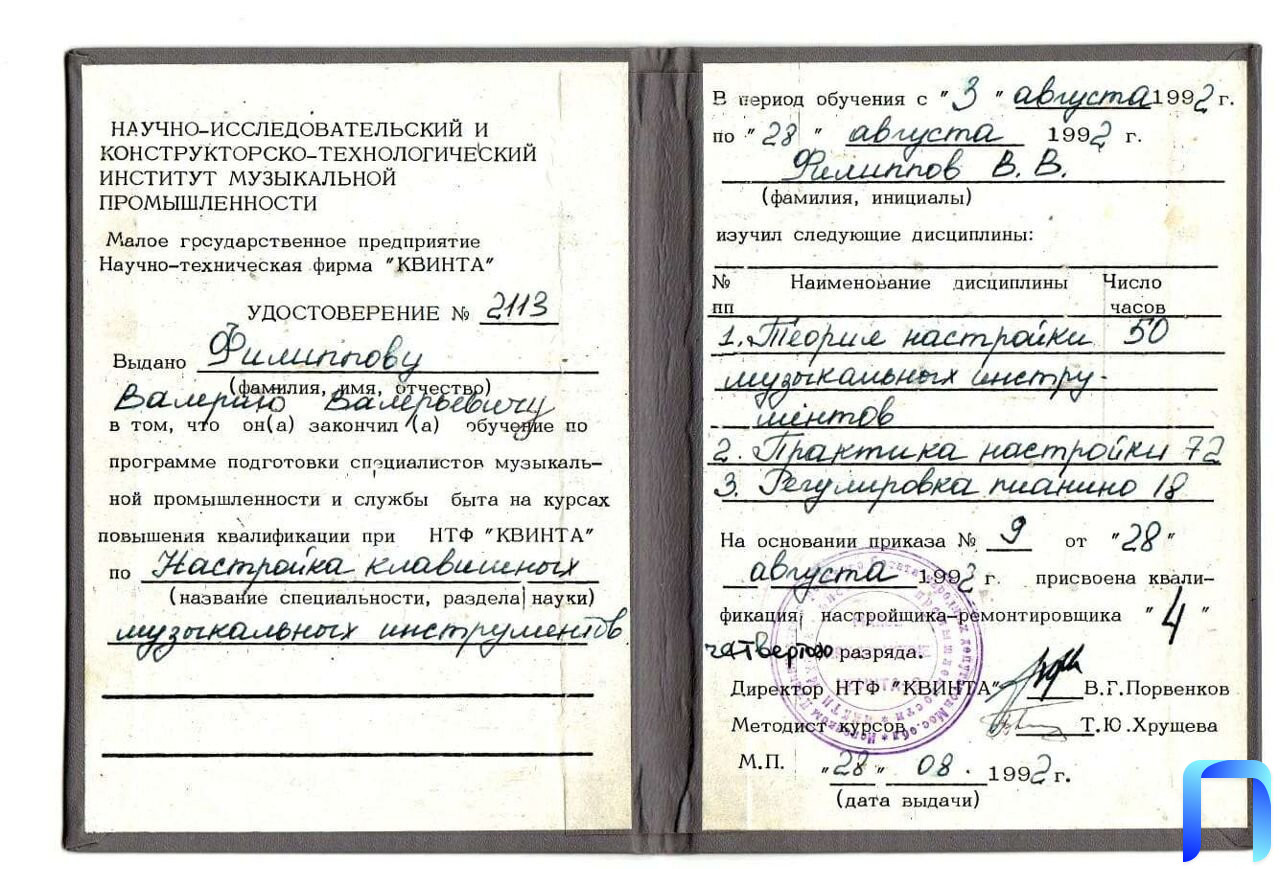 НАУЧНО-ИССЛЕДОВАТЕЛЬСКИЙ И
КОНСТРУКТОРСКО-ТЕХНОЛОГИЧЕСКИЙ
ИНСТИТУТ МУЗЫКАЛЬНОЙ
ПРОМЫШЛЕННОСТИ
Малое государственное предприятие
Научно-техническая фирма "КВИНТА"
УДОСТОВЕРЕНИЕ № 2113
Выдано Филиппову
(фамилия, имя, отчество)
Валерию Валерьевичу
в том, что он(а) закончил (а) обучение по
программе подготовки специалистов музыкаль-
ной промышленности и службы быта на курсах
повышения квалификации при НТФ "КВИНТА"
по Настройка клавишных
(название специальности, раздела науки)
музыкальных инструментов
В период обучения с "3" августа 1992 г.
по "28" августа 1992 г.
Филиппов В. В.
(фамилия, инициалы)
изучил следующие дисциплины:
№ Наименование дисциплины Число
пп часов
1. Теория настройки 50
музыкальных инстру-
ментов
2. Практика настройки 72
3. Регулировка пианино 18
На основании приказа № 9 от "28"
августа 1992 г. присвоена квали-
фикация настройщика-ремонтировщика "4"
четвертого разряда.
Директор НТФ "КВИНТА" В.Г.Порвенков
Методист курсов Т.Ю.Хрущева
М.П. "28" 08. 1992 г.
(дата выдачи)